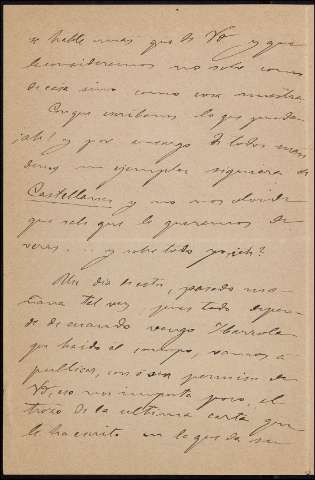 se hable más que de Vd y que
le consideremos no solo como
de casa sino como cosa nuestra.
Conque escríbanos lo que pueda
¡ah! y por encargo de todos mán
denos un ejemplar siquiera de
Castellanas y no nos olvide
que sabe que le queremos de
veras... y sobre todo yo, ¿eh?
Un día de estos, pasado ma-
ñana tal vez, pues todo depen-
de de cuando venga Ibarrola
que ha ido al campo, vamos a
publicar, con ó sin permiso de
Vd, eso nos importa poco, el
trozo de la última carta que
le ha escrito en lo que da su